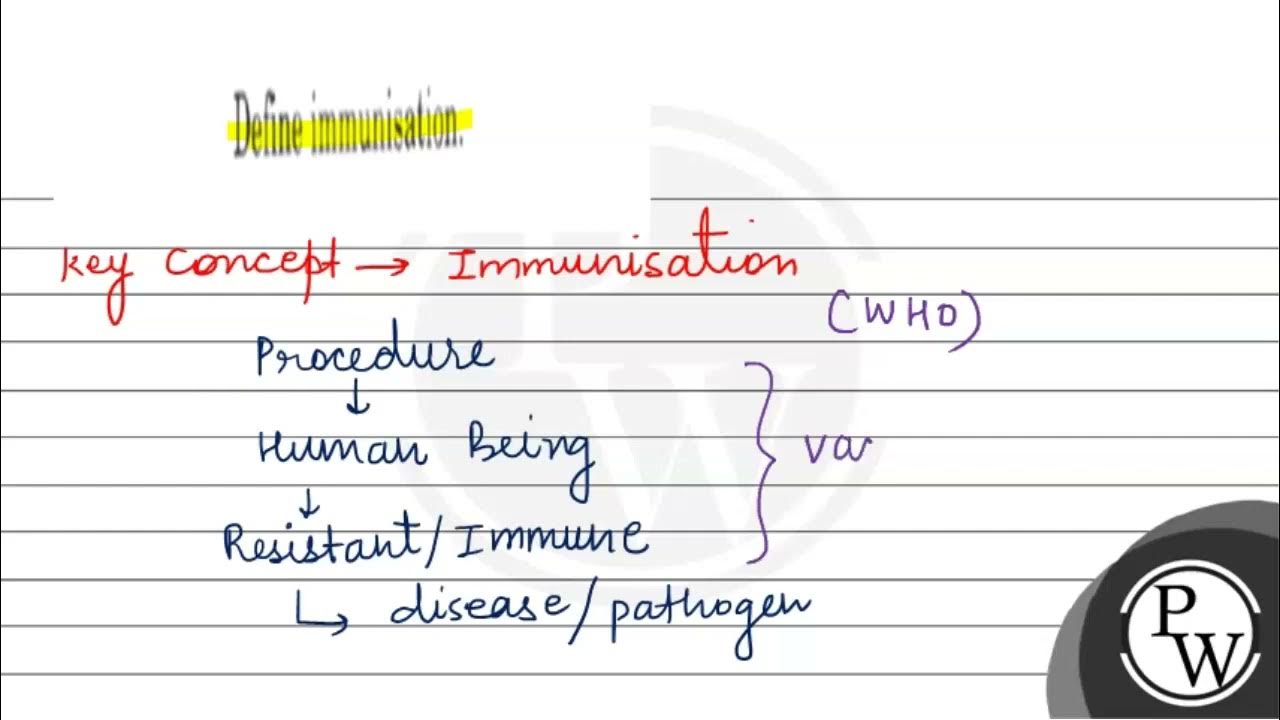 Define immunisation.
Key concept → Immunisation
(WHO)
Procedure
↓
Human Being
↓
Resistant/Immune
} va
↳ disease/pathogen
PW